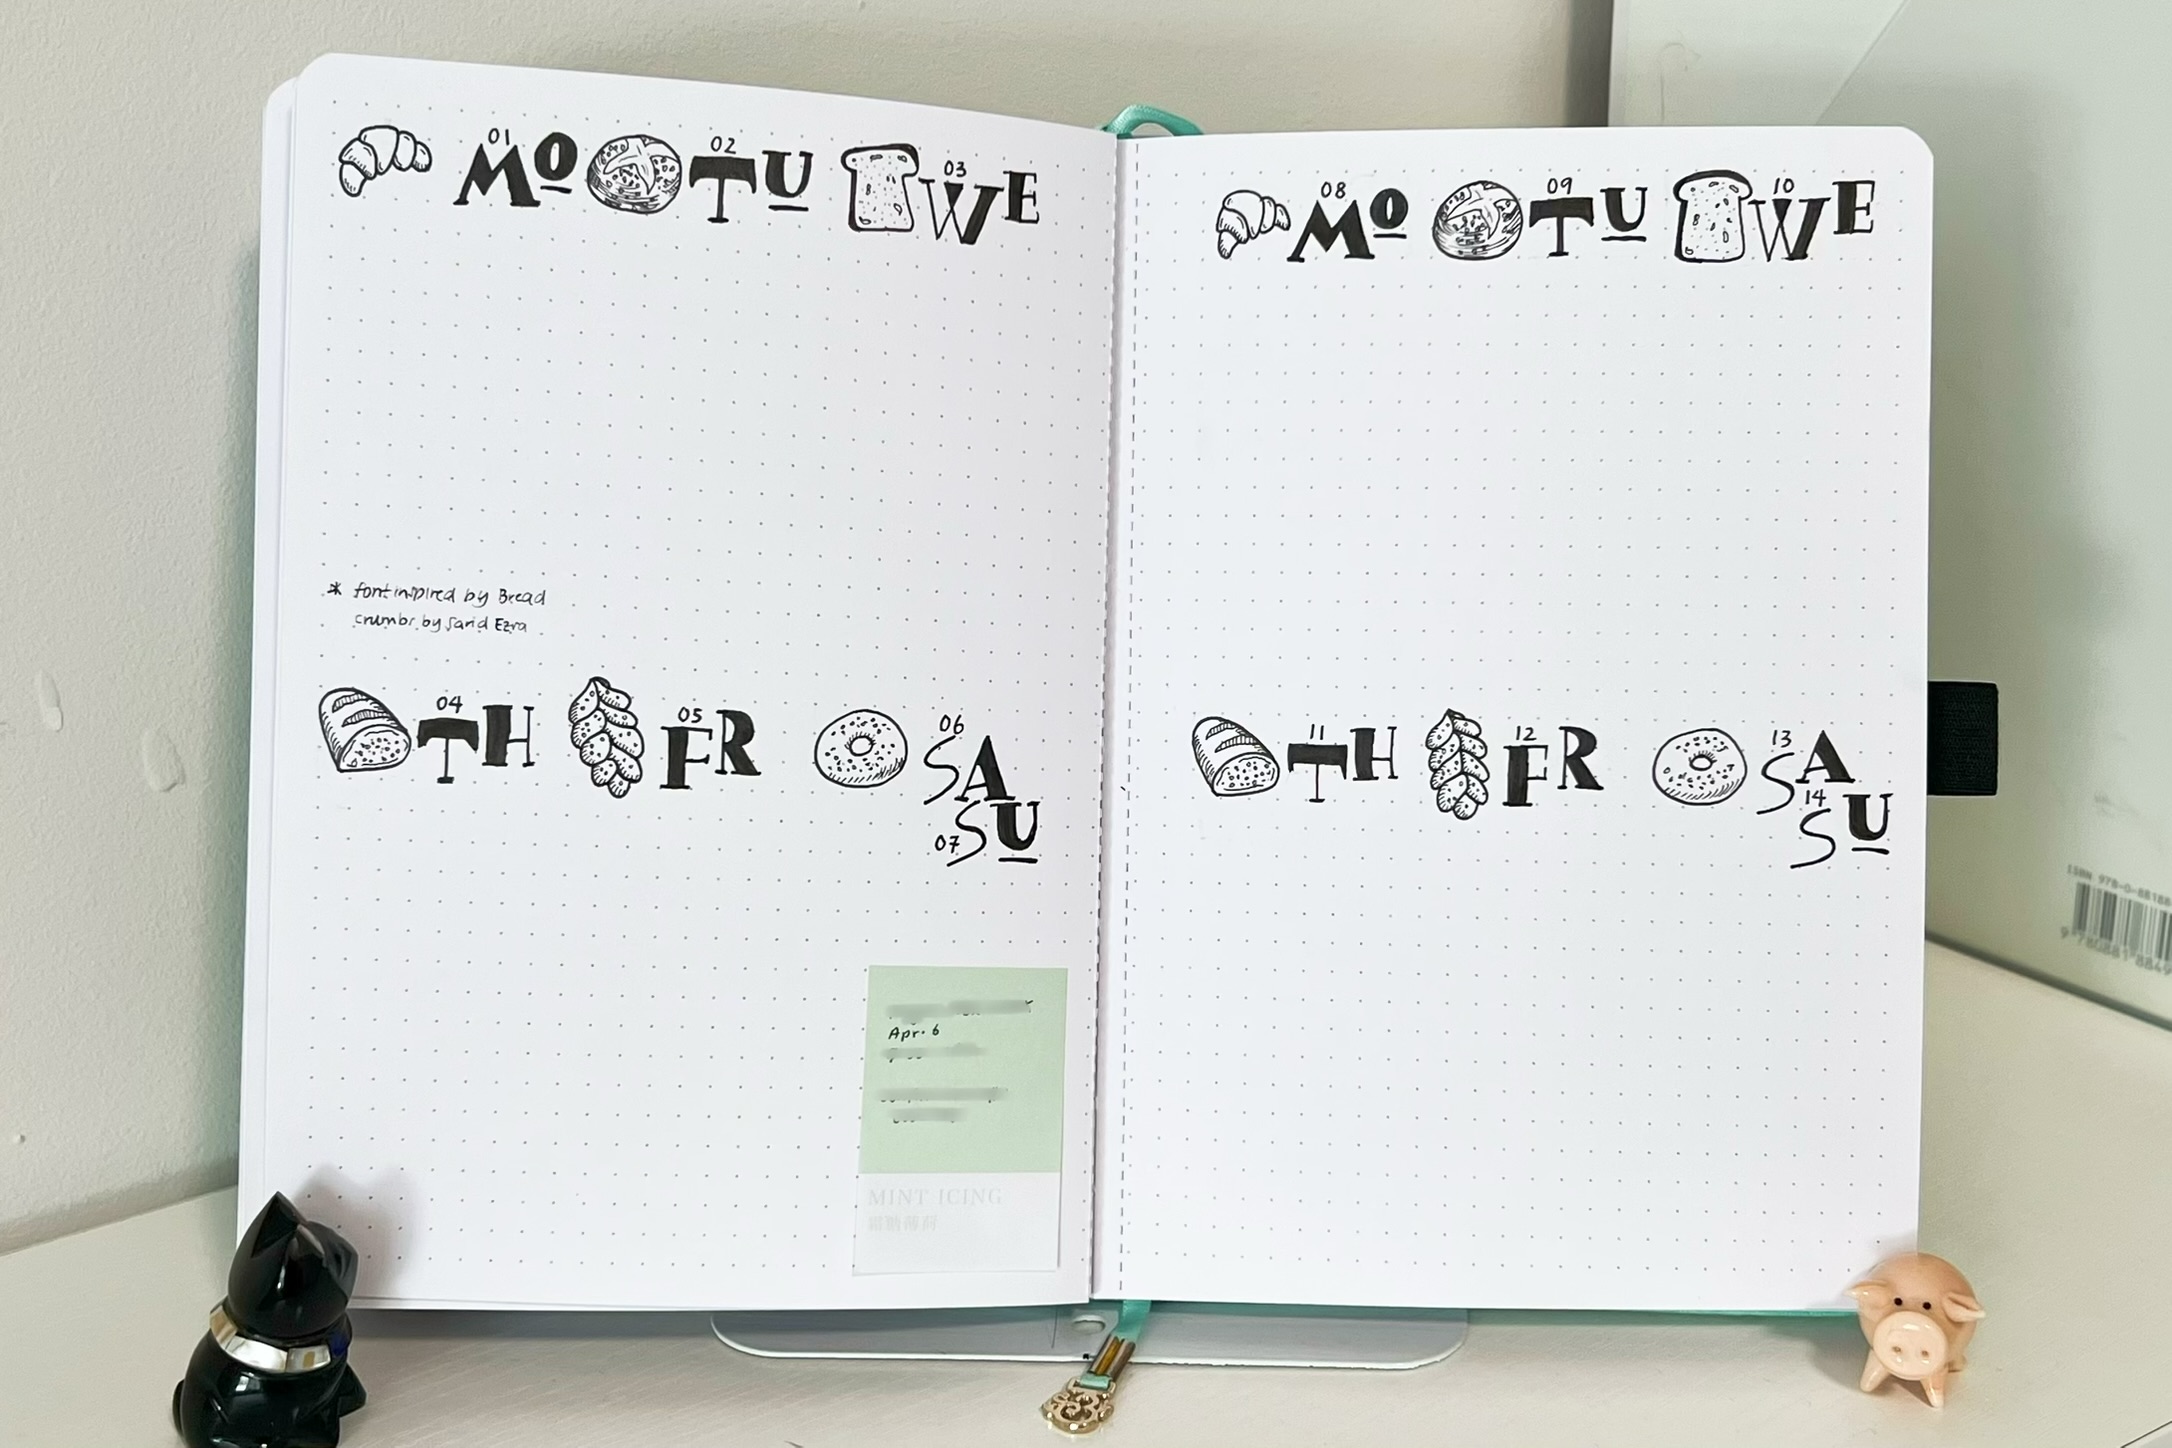 01 MO 02 TU 03 WE
* font inspired by Bread
crumbs by Sarid Ezra
04 TH 05 FR 06 SA
07 SU
Apr. 6
MINT ICING
08 MO 09 TU 10 WE
11 TH 12 FR 13 SA
14 SU